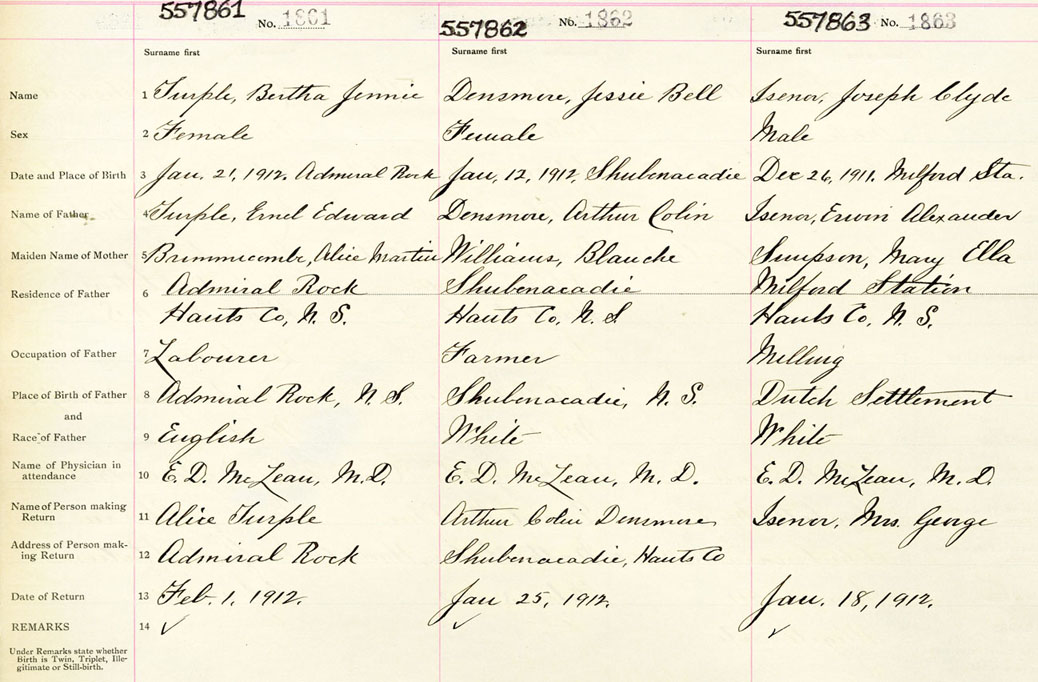 557861 No. 1861 557862 No. 1862 557863 No. 1863
Surname first Surname first Surname first
Name 1 Turple, Bertha Jennie Densmore, Jessie Bell Isenor, Joseph Clyde
Sex 2 Female Female Male
Date and Place of Birth 3 Jan. 21, 1912. Admiral Rock Jan, 12, 1912, Shubenacadie Dec 26, 1911. Milford Sta.
Name of Father 4 Turple, Ernel Edward Densmore, Arthur Colin Isenor, Erwin Alexander
Maiden Name of Mother 5 Brimmicombe, Alice Martin Williams, Blanche Simpson, Mary Ella
Residence of Father 6 Admiral Rock Shubenacadie Milford Station
Hants Co, N. S. Hants Co, N. S Hants Co, N. S.
Occupation of Father 7 Labourer Farmer Milling
Place of Birth of Father 8 Admiral Rock, N. S. Shubenacadie, N. S. Dutch Settlement
and
Race of Father 9 English White White
Name of Physician in
attendance 10 E. D. McLean, M.D. E. D. McLean, M. D. E. D. McLean, M. D.
Name of Person making
Return 11 Alice Turple Arthur Colin Densmore Isenor, Mrs. George
Address of Person mak-
ing Return 12 Admiral Rock Shubenacadie, Hants Co
Date of Return 13 Feb. 1. 1912. Jan 25, 1912. Jan. 18, 1912.
REMARKS 14 ✓ ✓ ✓
Under Remarks state whether
Birth is Twin, Triplet, Ille-
gitimate or Still-birth.